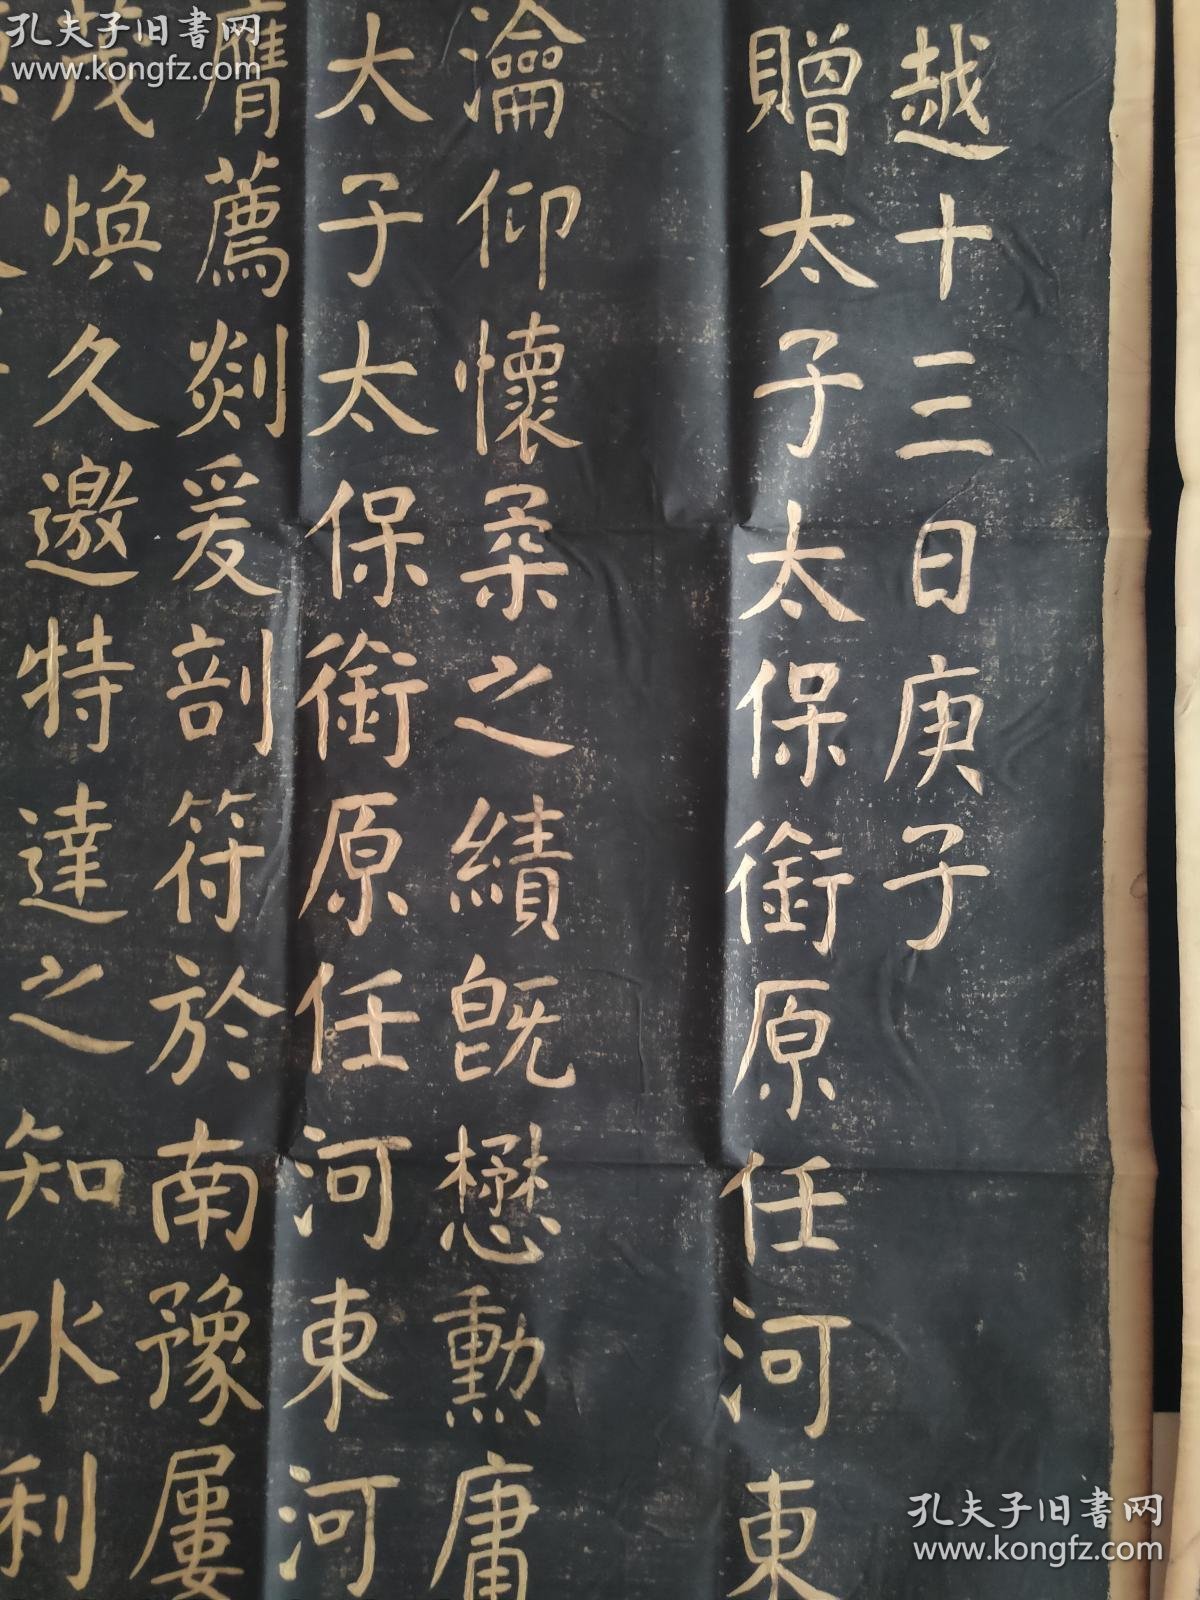 越十三日庚子
贈太子太保銜原任河東
瀹仰懷柔之績既懋勳庸
太子太保銜原任河東河
膺薦剡爰剖符於南豫屢
茂煥久邀特達之知水利
孔夫子旧书网
www.kongfz.com
孔夫子旧书网
www.kongfz.com